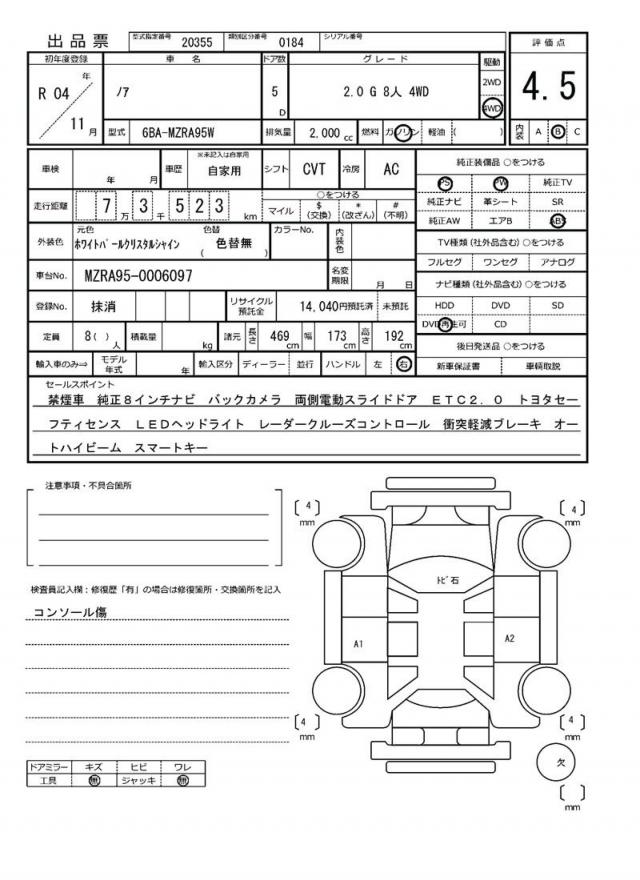 出品票 型式指定番号 20355 類別区分番号 0184 シリアル番号
初年度登録 車名 ドア数 グレード 駆動 評価点
R 04 年 ﾉｱ 5 D 2.0 G 8人 4WD 2WD 4WD 4.5
11 月 型式 6BA-MZRA95W 排気量 2,000 cc 燃料 ガソリン 軽油 ( ) 内装 A B C
車検 年 月 車歴 ※未記入は自家用 自家用 シフト CVT 冷房 AC 純正装備品 ○をつける
PS PW 純正TV
走行距離 7 万 3 千 5 2 3 km ○をつける マイル $ (交換) * (改ざん) # (不明) 純正ナビ 革シート SR
純正AW エアB ABS
外装色 元色 ﾎﾜｲﾄﾊﾟｰﾙｸﾘｽﾀﾙｼｬｲﾝ 色替 ( 色替無 ) カラーNo. 内装色 TV種類 (社外品含む) ○をつける
フルセグ ワンセグ アナログ
車台No. MZRA95-0006097 名変期限 月 日 ナビ種類 (社外品含む) ○をつける
登録No. 抹消 リサイクル預託金 14,040円預託済 未預託 HDD DVD SD
DVD再生可 CD
定員 8( ) 人 積載量 kg 諸元 長さ 469 cm 幅 173 cm 高さ 192 cm 後日発送品 ○をつける
輸入車のみ⇒ モデル年式 年 輸入区分 ディーラー 並行 ハンドル 左 右 新車保証書 車輌取説
セールスポイント
禁煙車 純正８インチナビ バックカメラ 両側電動スライドドア ＥＴＣ２．０ トヨタセー
フティセンス ＬＥＤヘッドライト レーダークルーズコントロール 衝突軽減ブレーキ オー
トハイビーム スマートキー
注意事項・不具合箇所
検査員記入欄：修復歴「有」の場合は修復箇所・交換箇所を記入
コンソール傷
ドアミラー キズ ヒビ ワレ
工具 無 ジャッキ 無
4 mm
4 mm
ﾄﾋﾞ石
A1
A2
4 mm
4 mm
欠
mm